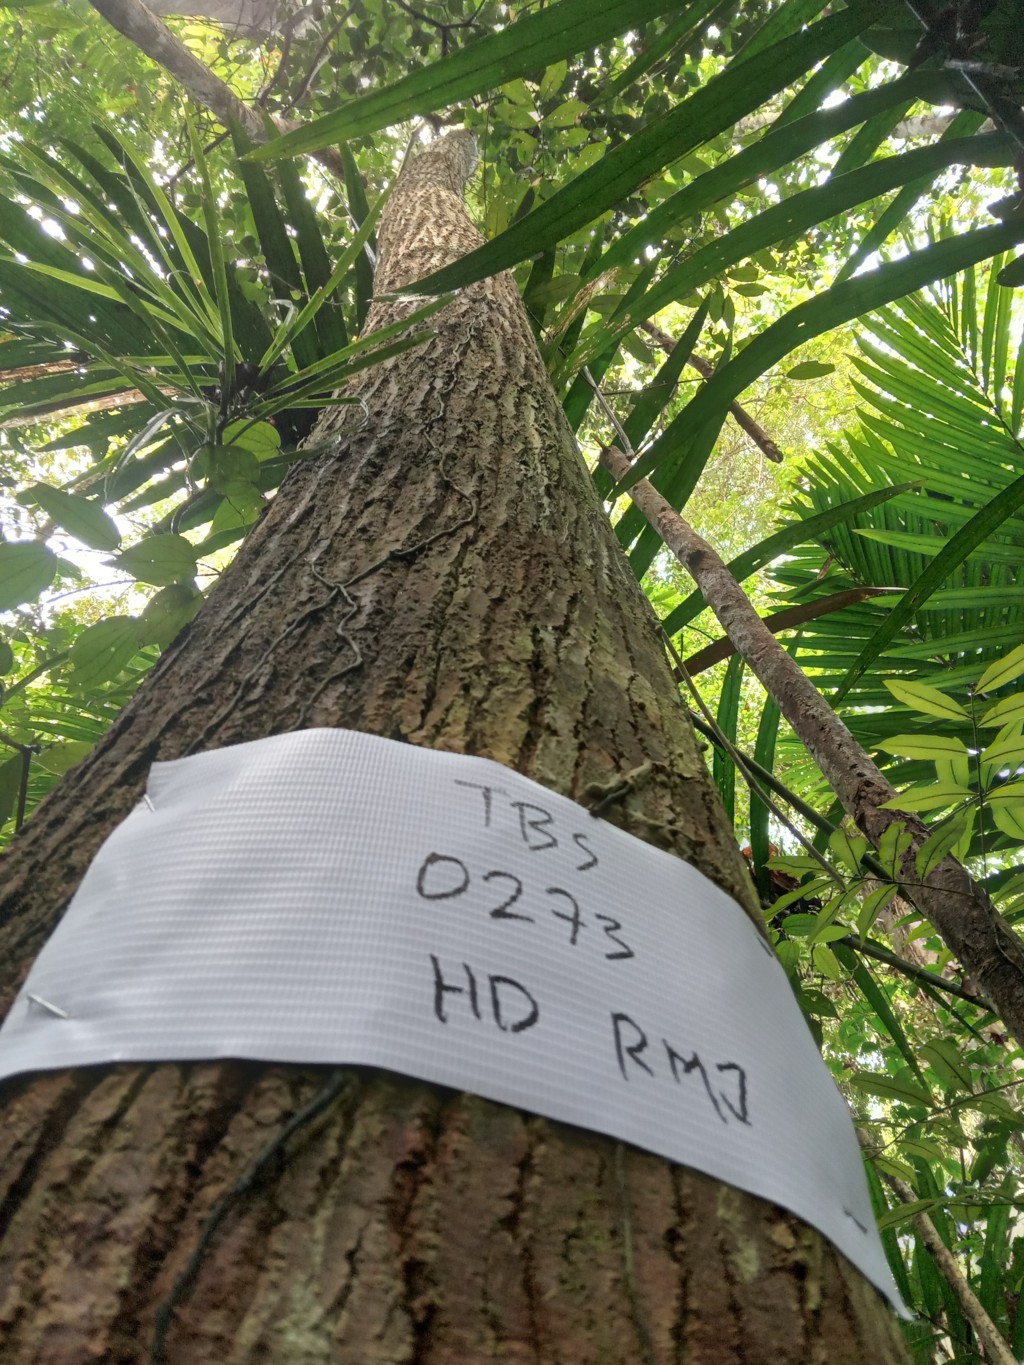 TBS
0273
HD RMJ